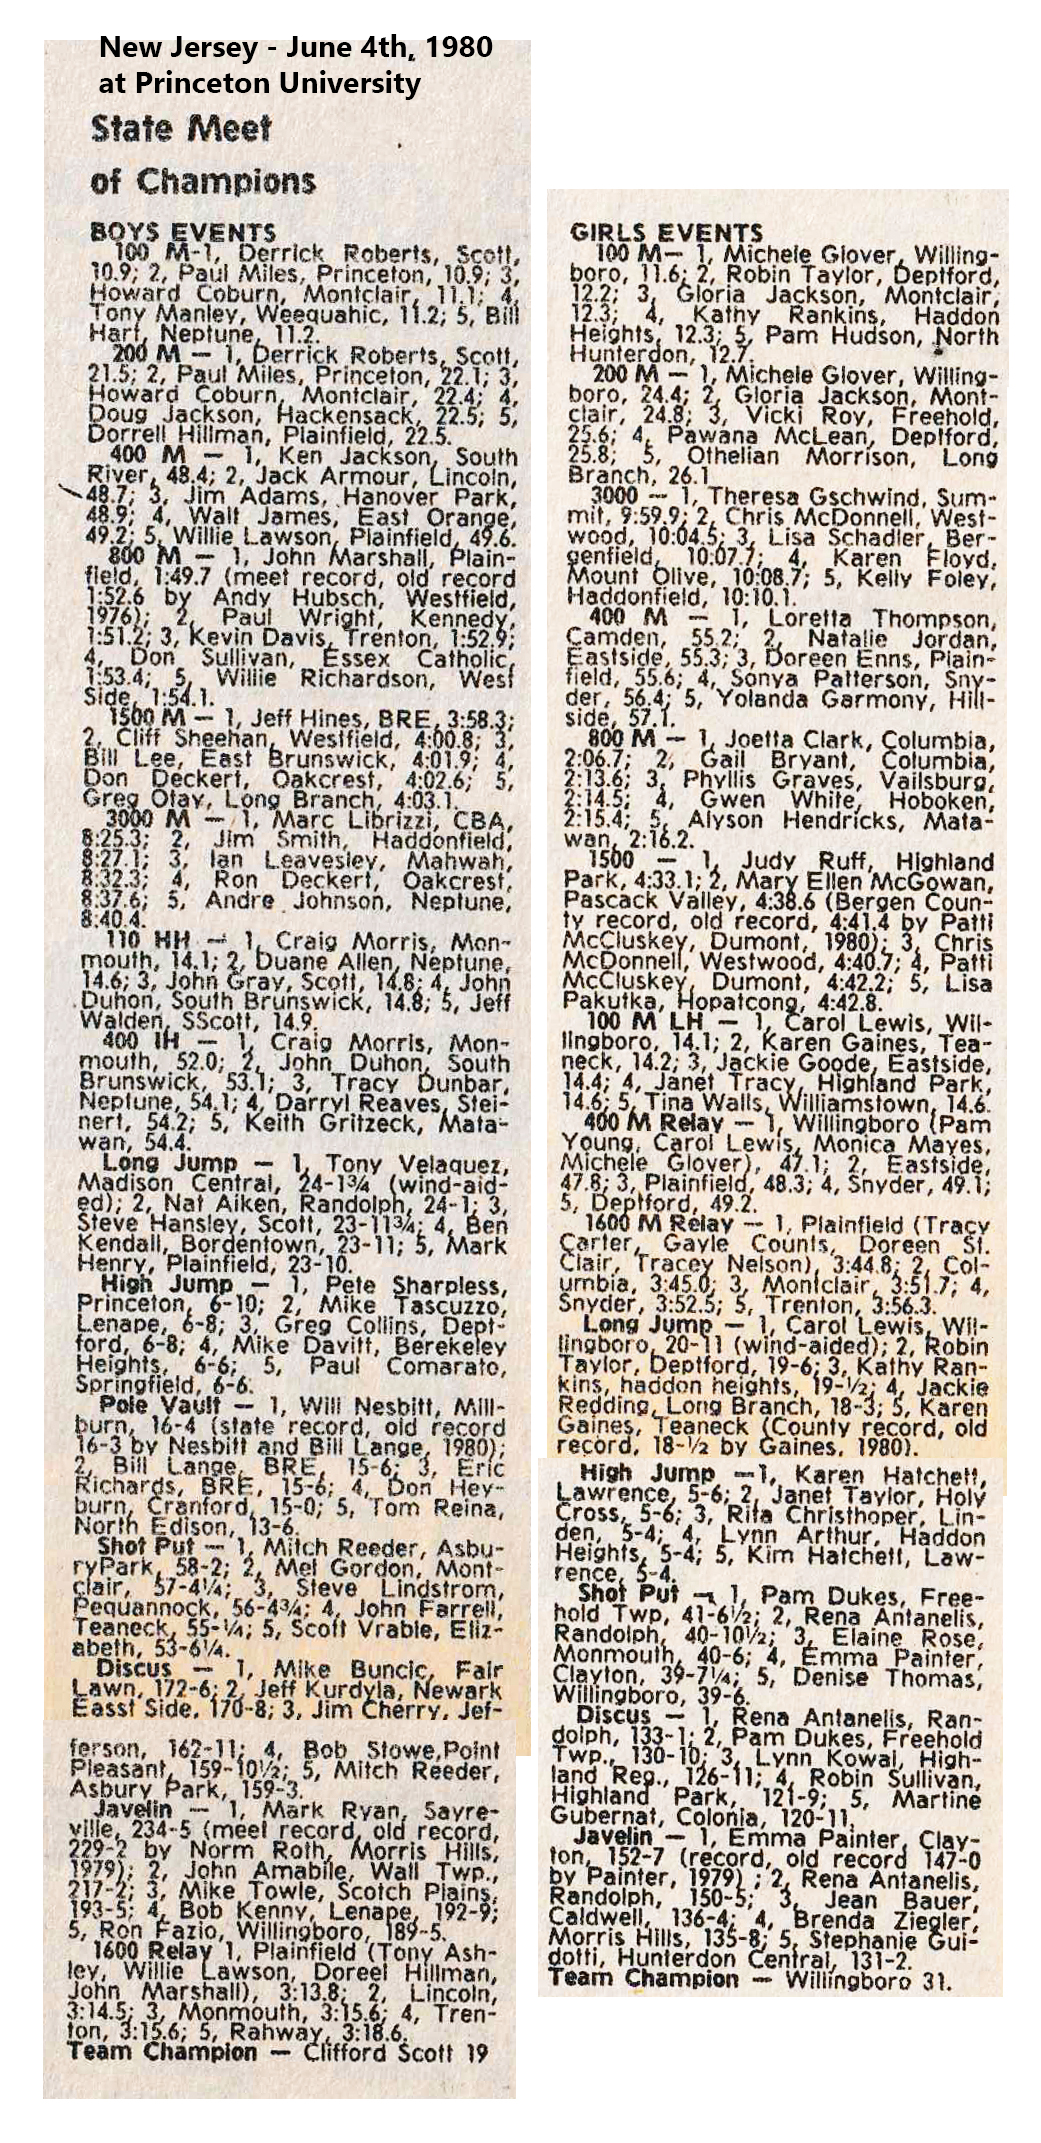 New Jersey - June 4th, 1980
at Princeton University
State Meet
of Champions
BOYS EVENTS
100 M-1, Derrick Roberts, Scott,
10.9; 2, Paul Miles, Princeton, 10.9; 3,
Howard Coburn, Montclair, 11.1; 4,
Tony Manley, Weequahic, 11.2; 5, Bill
Hart, Neptune, 11.2.
200 M — 1, Derrick Roberts, Scott,
21.5; 2, Paul Miles, Princeton, 22.1; 3,
Howard Coburn, Montclair, 22.4; 4,
Doug Jackson, Hackensack, 22.5; 5,
Dorrell Hillman, Plainfield, 22.5.
400 M — 1, Ken Jackson, South
River, 48.4; 2, Jack Armour, Lincoln,
48.7; 3, Jim Adams, Hanover Park,
48.9; 4, Walt James, East Orange,
49.2; 5, Willie Lawson, Plainfield, 49.6.
800 M — 1, John Marshall, Plain-
field, 1:49.7 (meet record, old record
1:52.6 by Andy Hubsch, Westfield,
1976); 2, Paul Wright, Kennedy,
1:51.2; 3, Kevin Davis, Trenton, 1:52.9;
4, Don Sullivan, Essex Catholic,
1:53.4; 5, Willie Richardson, West
Side, 1:54.1.
1500 M — 1, Jeff Hines, BRE, 3:58.3;
2, Cliff Sheehan, Westfield, 4:00.8; 3,
Bill Lee, East Brunswick, 4:01.9; 4,
Don Deckert, Oakcrest, 4:02.6; 5,
Greg Otay, Long Branch, 4:03.1.
3000 M — 1, Marc Librizzi, CBA,
8:25.3; 2, Jim Smith, Haddonfield,
8:27.1; 3, Ian Leavesley, Mahwah,
8:32.3; 4, Ron Deckert, Oakcrest,
8:37.6; 5, Andre Johnson, Neptune,
8:40.4.
110 HH — 1, Craig Morris, Mon-
mouth, 14.1; 2, Duane Allen, Neptune,
14.6; 3, John Gray, Scott, 14.8; 4, John
Duhon, South Brunswick, 14.8; 5, Jeff
Walden, SScott, 14.9.
400 IH — 1, Craig Morris, Mon-
mouth, 52.0; 2, John Duhon, South
Brunswick, 53.1; 3, Tracy Dunbar,
Neptune, 54.1; 4, Darryl Reaves, Stei-
nert, 54.2; 5, Keith Gritzeck, Mata-
wan, 54.4.
Long Jump — 1, Tony Velaquez,
Madison Central, 24-1¾ (wind-aid-
ed); 2, Nat Aiken, Randolph, 24-1; 3,
Steve Hansley, Scott, 23-11¾; 4, Ben
Kendall, Bordentown, 23-11; 5, Mark
Henry, Plainfield, 23-10.
High Jump — 1, Pete Sharpless,
Princeton, 6-10; 2, Mike Tascuzzo,
Lenape, 6-8; 3, Greg Collins, Dept-
ford, 6-8; 4, Mike Davitt, Berekeley
Heights, 6-6; 5, Paul Comarato,
Springfield, 6-6.
Pole Vault — 1, Will Nesbitt, Mill-
burn, 16-4 (state record, old record
16-3 by Nesbitt and Bill Lange, 1980);
2, Bill Lange, BRE, 15-6; 3, Eric
Richards, BRE, 15-6; 4, Don Hey-
burn, Cranford, 15-0; 5, Tom Reina,
North Edison, 13-6.
Shot Put — 1, Mitch Reeder, Asbu-
ryPark, 58-2; 2, Mel Gordon, Mont-
clair, 57-4¼; 3, Steve Lindstrom,
Pequannock, 56-4¾; 4, John Farrell,
Teaneck, 55-¼; 5, Scott Vrable, Eliz-
abeth, 53-6¼.
Discus — 1, Mike Buncic, Fair
Lawn, 172-6; 2, Jeff Kurdyla, Newark
Easst Side, 170-8; 3, Jim Cherry, Jef-
ferson, 162-11; 4, Bob Stowe,Point
Pleasant, 159-10½; 5, Mitch Reeder,
Asbury Park, 159-3.
Javelin — 1, Mark Ryan, Sayre-
ville, 234-5 (meet record, old record,
229-2 by Norm Roth, Morris Hills,
1979); 2, John Amabile, Wall Twp.,
217-2; 3, Mike Towle, Scotch Plains,
193-5; 4, Bob Kenny, Lenape, 192-9;
5, Ron Fazio, Willingboro, 189-5.
1600 Relay 1, Plainfield (Tony Ash-
ley, Willie Lawson, Doreel Hillman,
John Marshall), 3:13.8; 2, Lincoln,
3:14.5; 3, Monmouth, 3:15.6; 4, Tren-
ton, 3:15.6; 5, Rahway, 3:18.6.
Team Champion — Clifford Scott 19
GIRLS EVENTS
100 M— 1, Michele Glover, Willing-
boro, 11.6; 2, Robin Taylor, Deptford,
12.2; 3, Gloria Jackson, Montclair,
12.3; 4, Kathy Rankins, Haddon
Heights, 12.3; 5, Pam Hudson, North
Hunterdon, 12.7.
200 M — 1, Michele Glover, Willing-
boro, 24.4; 2, Gloria Jackson, Mont-
clair, 24.8; 3, Vicki Roy, Freehold,
25.6; 4, Pawana McLean, Deptford,
25.8; 5, Othelian Morrison, Long
Branch, 26.1
3000 — 1, Theresa Gschwind, Sum-
mit, 9:59.9; 2, Chris McDonnell, West-
wood, 10:04.5; 3, Lisa Schadler, Ber-
genfield, 10:07.7; 4, Karen Floyd,
Mount Olive, 10:08.7; 5, Kelly Foley,
Haddonfield, 10:10.1.
400 M — 1, Loretta Thompson,
Camden, 55.2; 2, Natalie Jordan,
Eastside, 55.3; 3, Doreen Enns, Plain-
field, 55.6; 4, Sonya Patterson, Sny-
der, 56.4; 5, Yolanda Garmony, Hill-
side, 57.1.
800 M — 1, Joetta Clark, Columbia,
2:06.7; 2, Gail Bryant, Columbia,
2:13.6; 3, Phyllis Graves, Vailsburg,
2:14.5; 4, Gwen White, Hoboken,
2:15.4; 5, Alyson Hendricks, Mata-
wan, 2:16.2.
1500 — 1, Judy Ruff, Highland
Park, 4:33.1; 2, Mary Ellen McGowan,
Pascack Valley, 4:38.6 (Bergen Coun-
ty record, old record, 4:41.4 by Patti
McCluskey, Dumont, 1980); 3, Chris
McDonnell, Westwood, 4:40.7; 4, Patti
McCluskey, Dumont, 4:42.2; 5, Lisa
Pakutka, Hopatcong, 4:42.8.
100 M LH — 1, Carol Lewis, Wil-
lingboro, 14.1; 2, Karen Gaines, Tea-
neck, 14.2; 3, Jackie Goode, Eastside,
14.4; 4, Janet Tracy, Highland Park,
14.6; 5, Tina Walls, Williamstown, 14.6.
400 M Relay — 1, Willingboro (Pam
Young, Carol Lewis, Monica Mayes,
Michele Glover), 47.1; 2, Eastside,
47.8; 3, Plainfield, 48.3; 4, Snyder, 49.1;
5, Deptford, 49.2.
1600 M Relay — 1, Plainfield (Tracy
Carter, Gayle Counts, Doreen St.
Clair, Tracey Nelson), 3:44.8; 2, Col-
umbia, 3:45.0; 3, Montclair, 3:51.7; 4,
Snyder, 3:52.5; 5, Trenton, 3:56.3.
Long Jump — 1, Carol Lewis, Wil-
lingboro, 20-11 (wind-aided); 2, Robin
Taylor, Deptford, 19-6; 3, Kathy Ran-
kins, haddon heights, 19-½; 4, Jackie
Redding, Long Branch, 18-3; 5, Karen
Gaines, Teaneck (County record, old
record, 18-½ by Gaines, 1980).
High Jump —1, Karen Hatchett,
Lawrence, 5-6; 2, Janet Taylor, Holy
Cross, 5-6; 3, Rita Christhoper, Lin-
den, 5-4; 4, Lynn Arthur, Haddon
Heights, 5-4; 5, Kim Hatchett, Law-
rence, 5-4.
Shot Put — 1, Pam Dukes, Free-
hold Twp, 41-6½; 2, Rena Antanelis,
Randolph, 40-10½; 3, Elaine Rose,
Monmouth, 40-6; 4, Emma Painter,
Clayton, 39-7¼; 5, Denise Thomas,
Willingboro, 39-6.
Discus — 1, Rena Antanelis, Ran-
dolph, 133-1; 2, Pam Dukes, Freehold
Twp., 130-10; 3, Lynn Kowal, High-
land Reg., 126-11; 4, Robin Sullivan,
Highland Park, 121-9; 5, Martine
Gubernat, Colonia, 120-11.
Javelin — 1, Emma Painter, Clay-
ton, 152-7 (record, old record 147-0
by Painter, 1979) ; 2, Rena Antanelis,
Randolph, 150-5; 3, Jean Bauer,
Caldwell, 136-4; 4, Brenda Ziegler,
Morris Hills, 135-8; 5, Stephanie Gui-
dotti, Hunterdon Central, 131-2.
Team Champion — Willingboro 31.